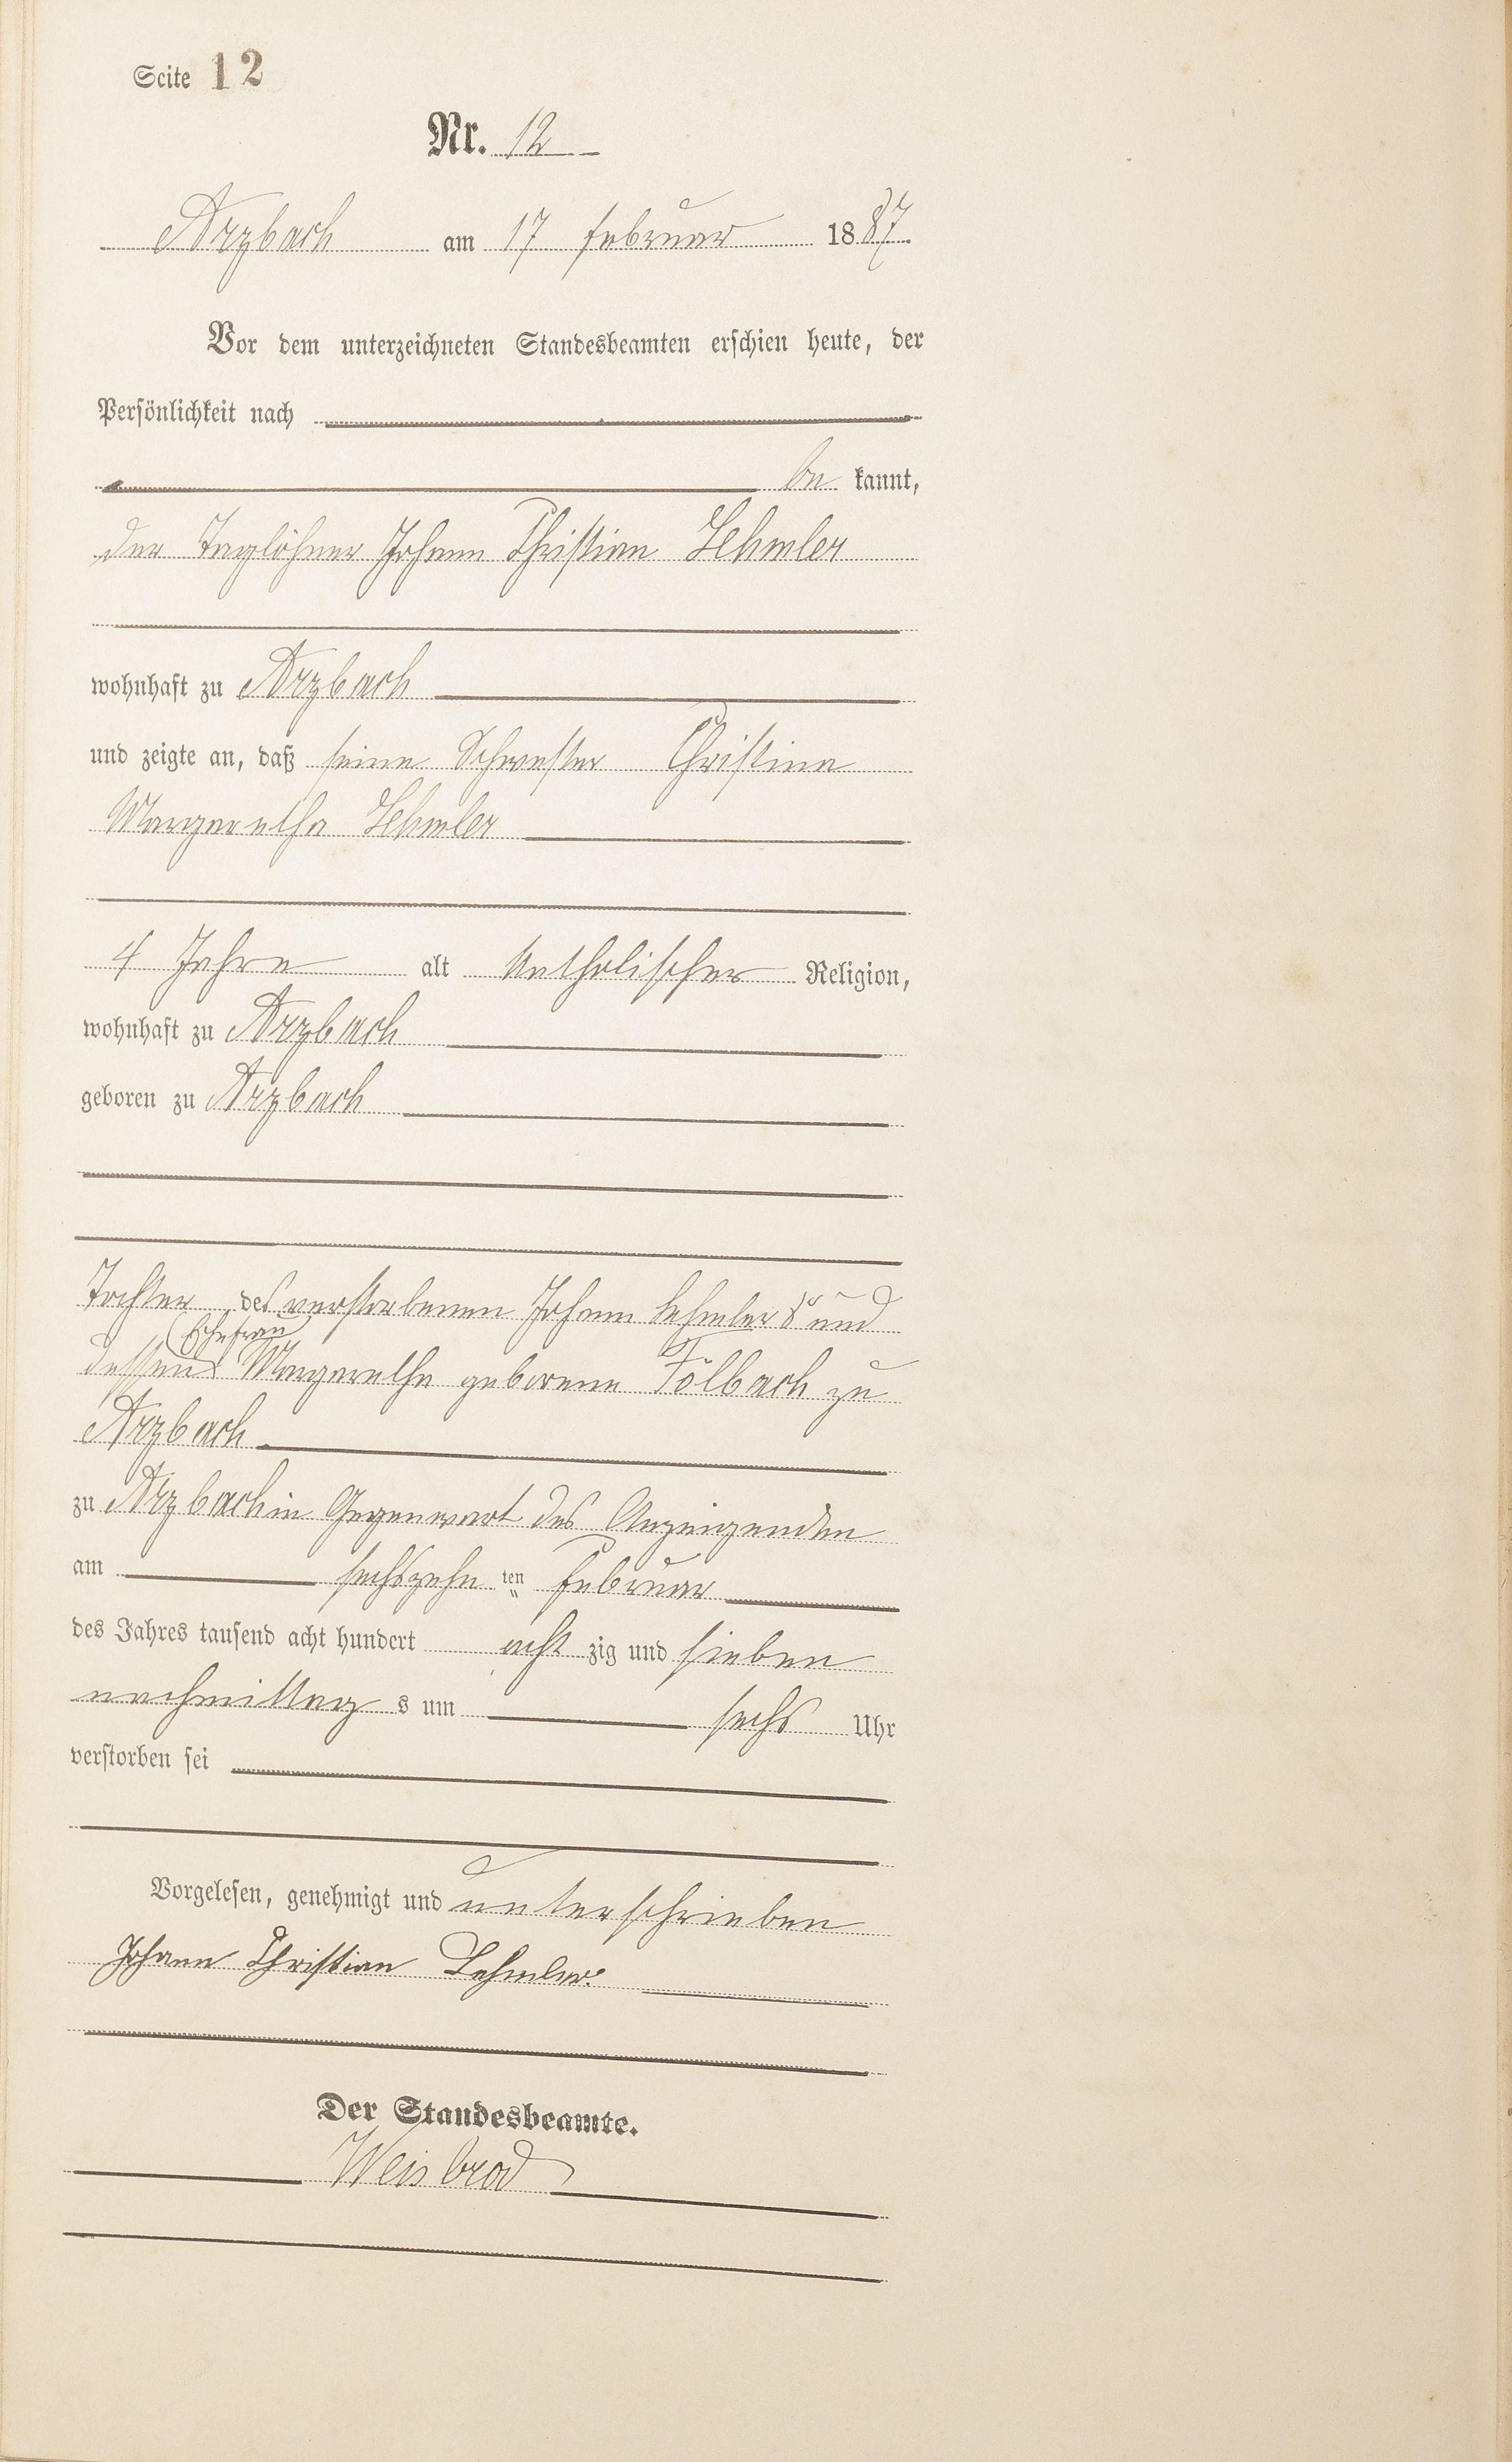 Seite 12
Nr. 12
Arzbach am 17 Februar 1887.
Vor dem unterzeichneten Standesbeamten erschien heute, der
Persönlichkeit nach
be kannt,
der Taglöhner Johann Christian Lehmler
wohnhaft zu Arzbach
und zeigte an, daß seine Schwester Christina
Margaretha Lehmler
4 Jahre alt katholischer Religion,
wohnhaft zu Arzbach
geboren zu Arzbach
Tochter des verstorbenen Johann Lehmler und
Ehefrau
dessen Margaretha geborene Fölbach zu
Arzbach
zu Arzbach in Gegenwart des Anzeigenden
am sechszehn ten Februar
des Jahres tausend acht hundert acht zig und sieben
nachmittag s um sechs Uhr
verstorben sei
Vorgelesen, genehmigt und unterschrieben
Johann Christian Lehmler.
Der Standesbeamte.
Weisbrod